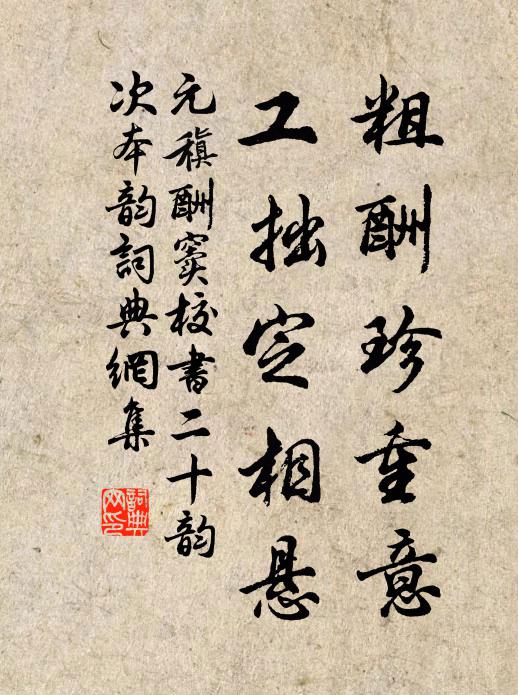 粗酬珍重意
工拙定相悬
元稹酬窦校書二十韵
次本韵詞典網集
詞典網印